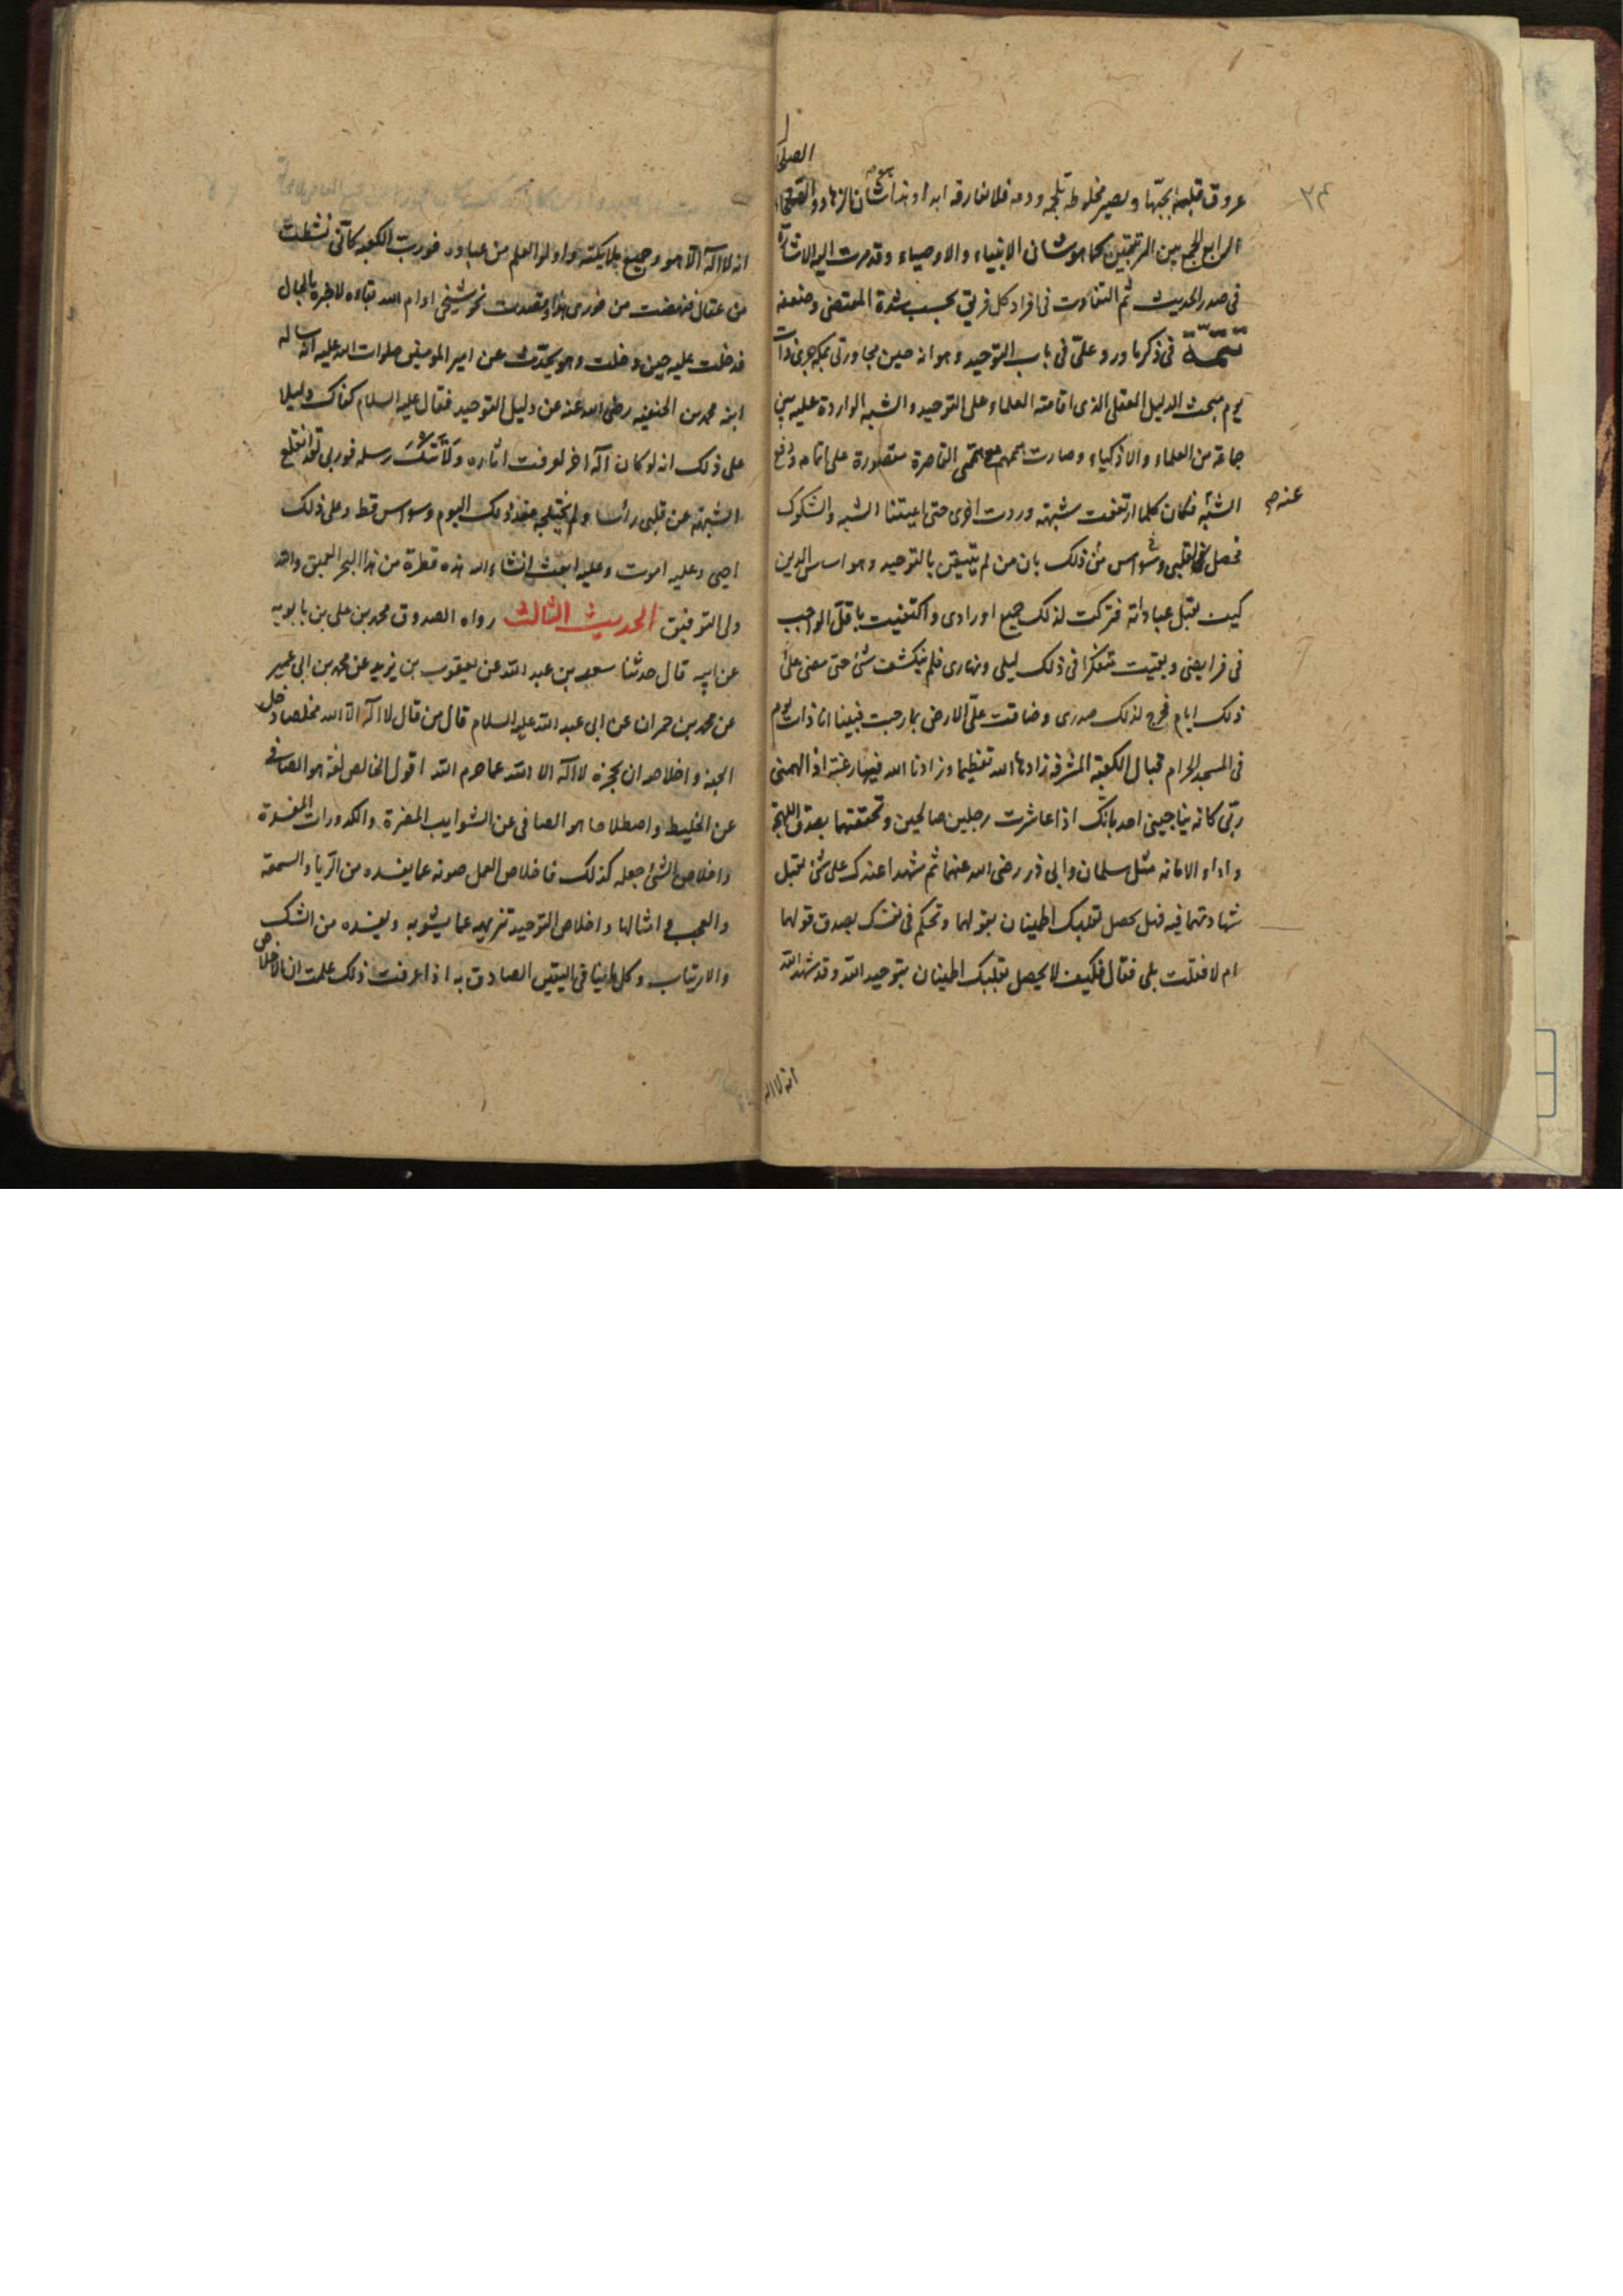 ٣٤
الصلحا
عروق قلبه بحبّها ويصير مخلوطه بلحمه ودمه فلا تفارقه ابدا وهذا شان الزهاد و
الرابع الجمع بين المرتبتين كما هو شان الانبياء والاوصياء وقد مرت اليه الاشارة
فى صدر الحديث ثم التفاوت فى افراد كل فريق بحسب شدة المقتضى وضعفه
تتمّة فى ذكر ما ورد علىّ فى باب التوحيد وهو انه حين مجاورتى بمكه جرى ذات
يوم مبحث الدليل العقلى الذى اقامته العلماء على التوحيد والشبه الواردة عليه بين
جماعة من العلماء والاذكياء وصارت همهم مع همّتى القاصرة مقصورة على اتمامه ودفع
الشبه عنه فكان كلما ارتفعت شبهة وردت اخرى حتى اعيتنا الشبه والشكوك
فحصل فى قلبى وسواس من ذلك بان من لم يتيقن بالتوحيد وهو اساس الدين
كيف يقبل عباداته فتركت لذلك جميع اورادى واكتفيت باقل الواجب
فى فرايضى وبقيت متفكرا فى ذلك ليلى ونهارى فلم ينكشف شئ حتى مضى علىّ
ذلك ايام فحرج لذلك صدرى وضاقت علىّ الارض بما رحبت فبينا انا ذات يوم
فى المسجد الحرام قبال الكعبة المشرفة زادها الله تعظيما وزادنا الله فيها رغبة اذ الهمنى
ربّى كانه يناجينى احد بانك اذا عاشرت رجلين صالحين وتحققتهما بصدق اللهجة
واداء الامانه مثل سلمان وابى ذر رضى الله عنهما ثم شهدا عندك على شئ يقبل
شهادتهما فيه فهل يحصل لقلبك اطمينان بقولهما وتحكم فى نفسك بصدق قولهما
ام لا فقلت بلى فقال فكيف لا يحصل بقلبك اطمينان بتوحيد الله وقد شهد الله
انه لا اله
انه لا اله الّا هو وجميع ملايكته واولوا العلم من عباده فورب الكعبه كانّى نشطت
من عقال فنهضت من فورى هذا وقصدت نحو شيخى ادام الله بقاءه لاخبره بالحال
فدخلت عليه حين دخلت وهو يحدّث عن امير المومنين صلوات الله عليه انه ساله
ابنه محمد بن الحنفيه رضى الله عنه عن دليل التوحيد فقال عليه السلام كفاك دليلا
على ذلك انه لو كان اله اخر لعرفت اثاره ولأتتك رسله فوربى لقد انقلع
الشبهة عن قلبى رأسا ولم يختلجه منذ ذلك اليوم وسواس قط وعلى ذلك
احيى وعليه اموت وعليه ابعث انشاء الله هذه قطرة من هذا البحر العميق والله
ولى التوفيق الحديث الثالث رواه الصدوق محمد بن على بن بابويه
عن ابيه قال حدثنا سعد بن عبد الله عن يعقوب بن يزيد عن محمد بن ابى عمير
عن محمد بن حمران عن ابى عبد الله عليه السلام قال من قال لا اله الّا الله مخلصا دخل
الجنة واخلاصه ان يحجزه لا اله الا الله عما حرم الله اقول الخالص لغة هو الصافى
عن الخليط واصطلاحا هو الصافى عن الشوايب المضرة والكدورات المفسدة
واخلاص الشئ جعله كذلك فاخلاص العمل صونه عما يفسده من الرّياء والسمعة
والعجب وامثالها واخلاص التوحيد تنزيهه عما يشوبه ويفسده من الشك
والارتياب وكل ما ينافى اليقين الصادق به اذا عرفت ذلك علمت ان الاخلاص